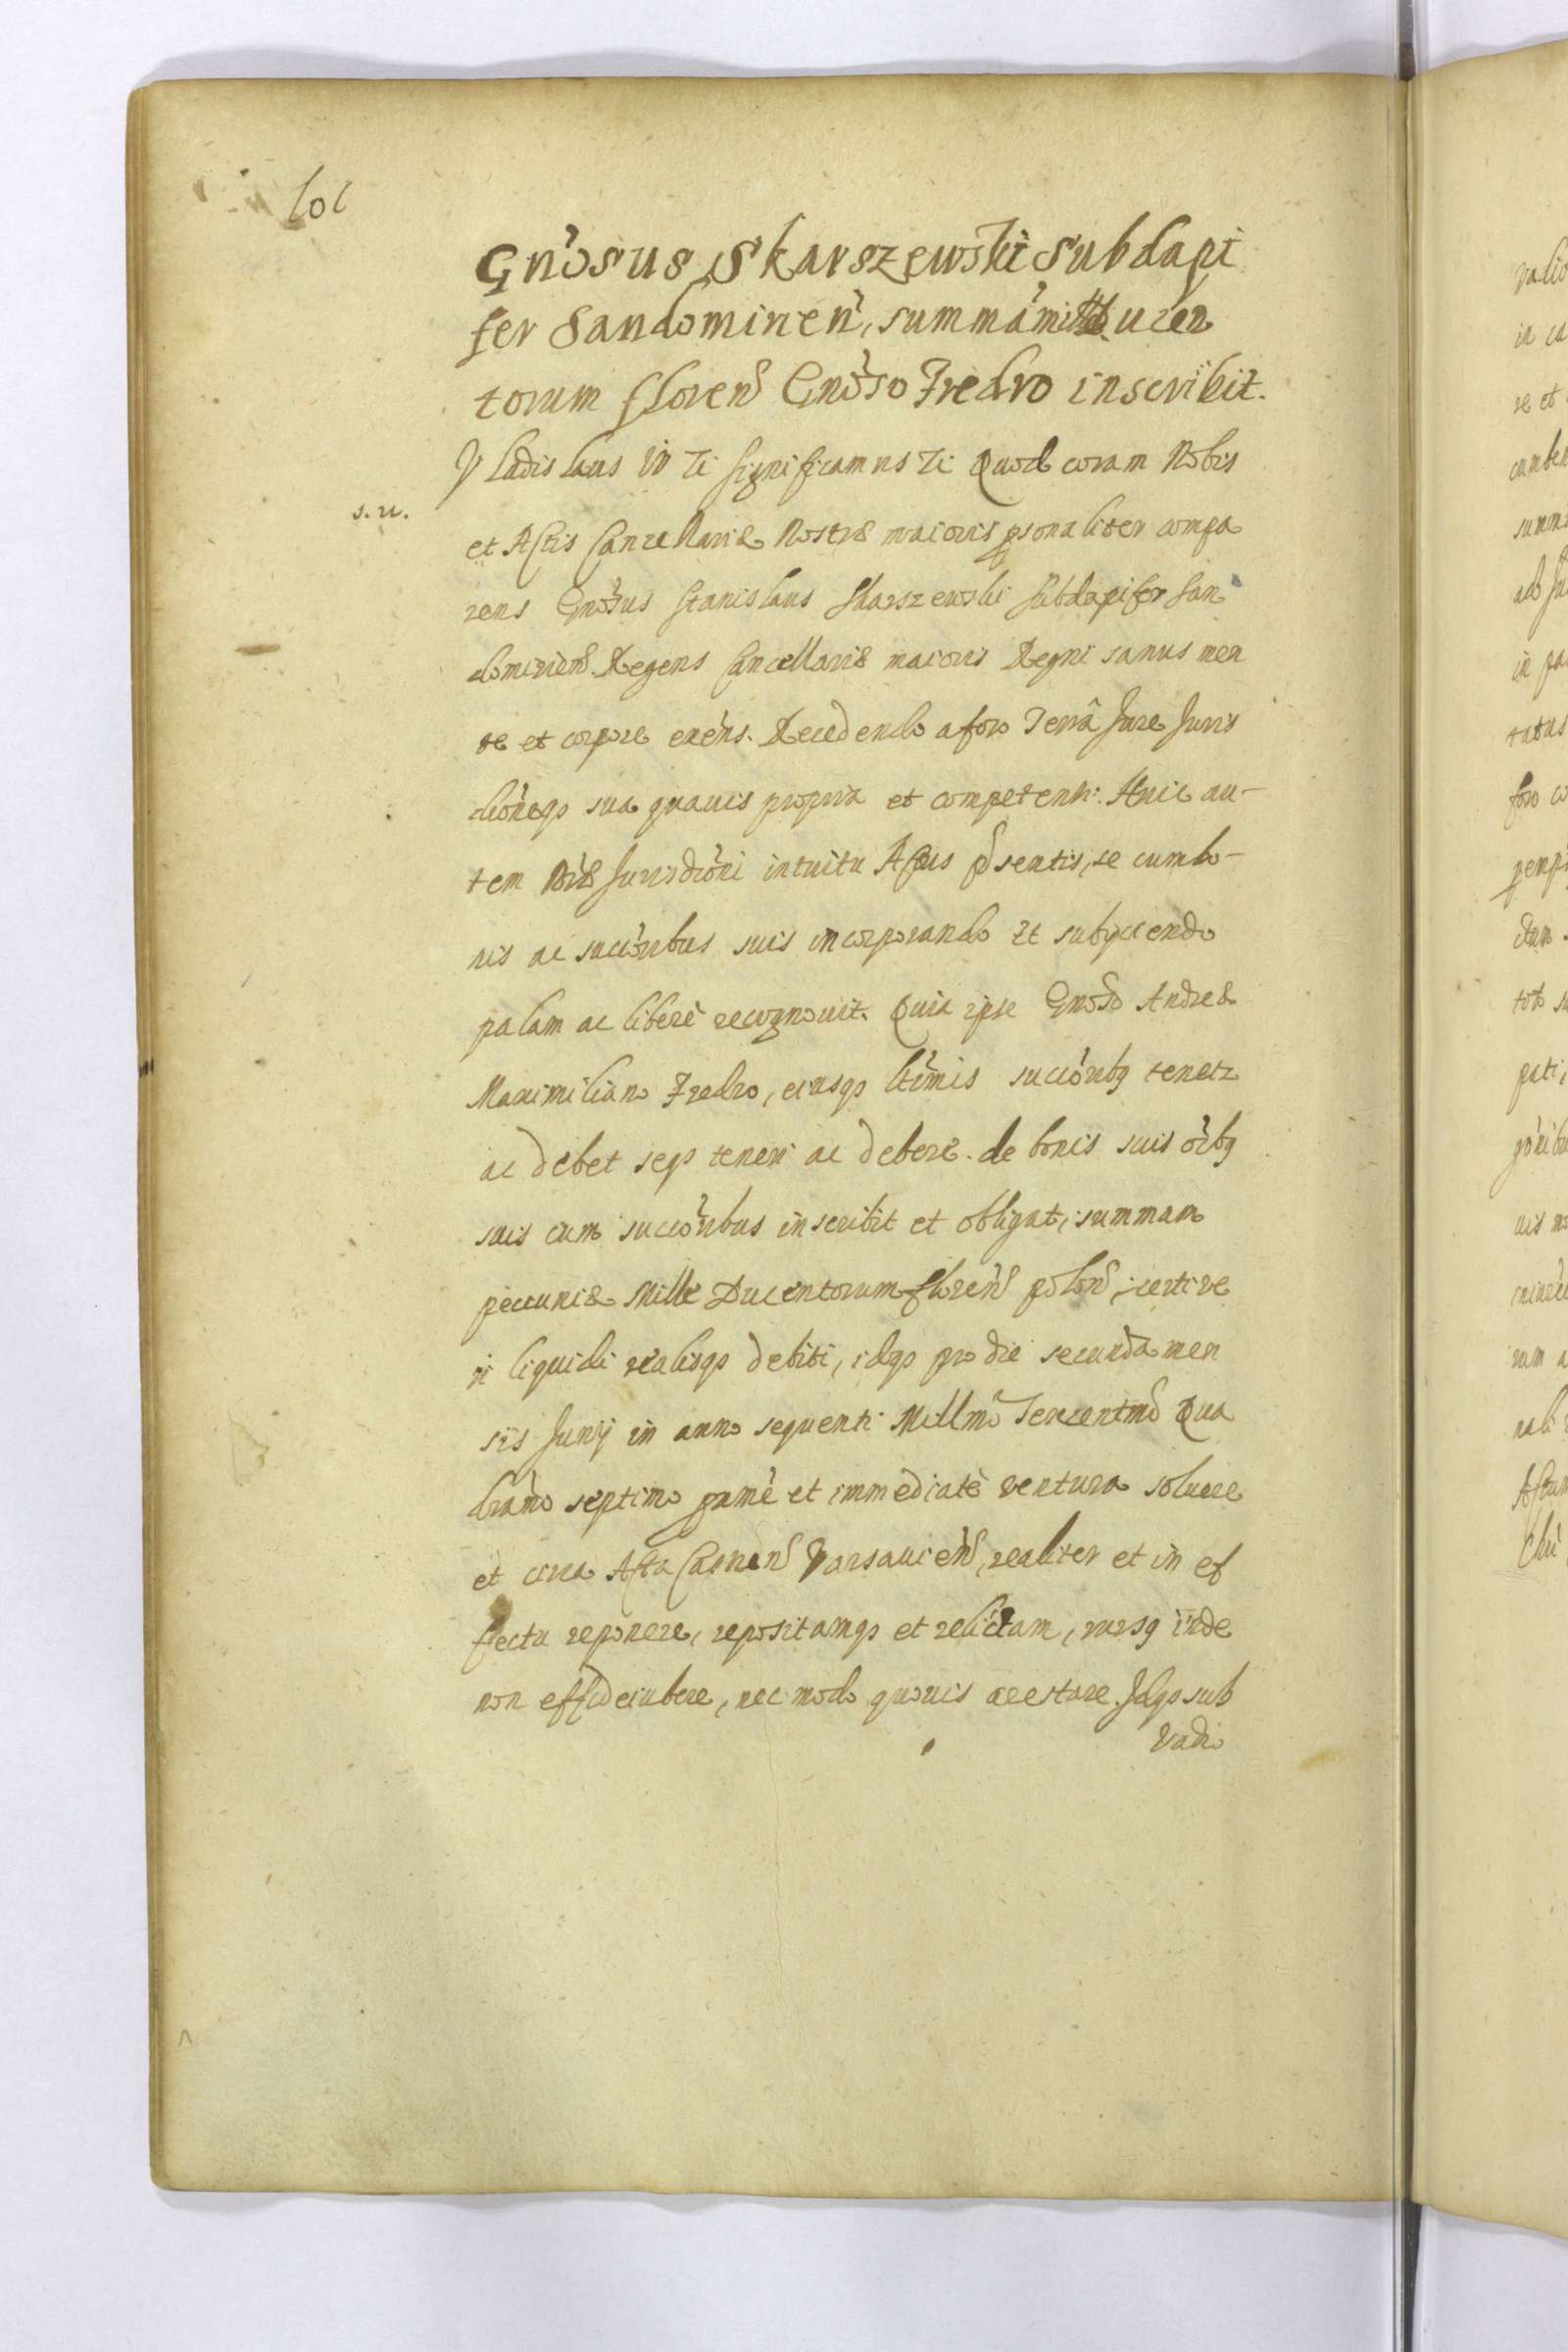 Gnosus Skarszewski Subdapi
fer Sandominen, summam mille Ducen
torum floren Gnoso Fredro inscribit.
Vladislaus IV Ti significamus Ti Quod coram Nobis
s. n.
et Actis Cancellariæ Nostræ maioris psonaliter compa
rens Gnosus Stanislaus Skarszewski Subdapifer San
domirien. Regens Cancellariæ maioris Regni sanus men
te et corpore exens. Recedendo a foro Terra Jure Juris
dioneqз sua quauis propria et competenti. Huic au-
tem Nræ Jurisdioni intuitu Actus psentis, se cum bo-
nis ac succoribus suis incorporando et subijciendo
palam ac liberè recognouit. Quia ipse Gnoso Andreæ
Maximiliano Fredro, eiusqз ltimis succoribз tenetr
ac debet seqз teneri ac debere. de bonis suis oibз
suis cum succoribus inscribit et obligat, summam
peccuniæ Mille Ducentorum floren polon, certi ve
ri liquidi realisqз debiti, idqз pro die secunda men
sis Junij in anno sequenti Millmo Sexcentmo Qua
dramo septimo pxmè et immediatè ventura soluere
et circa Acta Castren Varsauien, realiter et in ef
fectu reponere, repositamqз et relictam, rursз inde
non effideiubere, nec modo quouis arestare. Idqз sub
Vadio